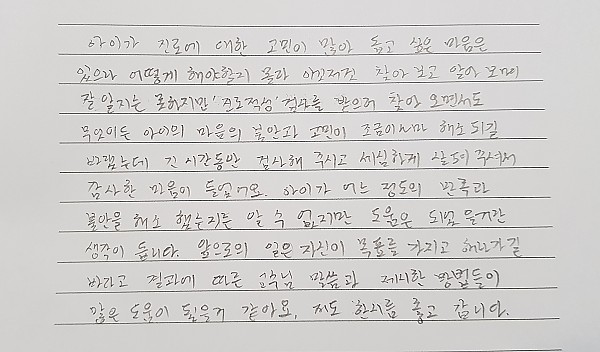 아이가 진로에 대한 고민이 많아 돕고 싶은 마음은
있으나 어떻게 해야할지 몰라 이것저것 찾아 보고 알아 보며
잘 알지는 못하지만 '진로적성' 검사를 받으러 찾아 오면서도
무엇이든 아이의 마음의 불안과 고민이 조금이나마 해소 되길
바랬는데 긴 시간동안 검사해 주시고 세심하게 살펴 주셔서
감사한 마음이 들었어요. 아이가 어느 정도의 만족과
불안을 해소 했는지는 알 수 없지만 도움은 되었을거란
생각이 듭니다. 앞으로의 일은 자신이 목표를 가지고 해나가길
바라고 결과에 따른 교수님 말씀과 제시한 방법들이
많은 도움이 될을거 같아요. 저도 한시름 놓고 갑니다.